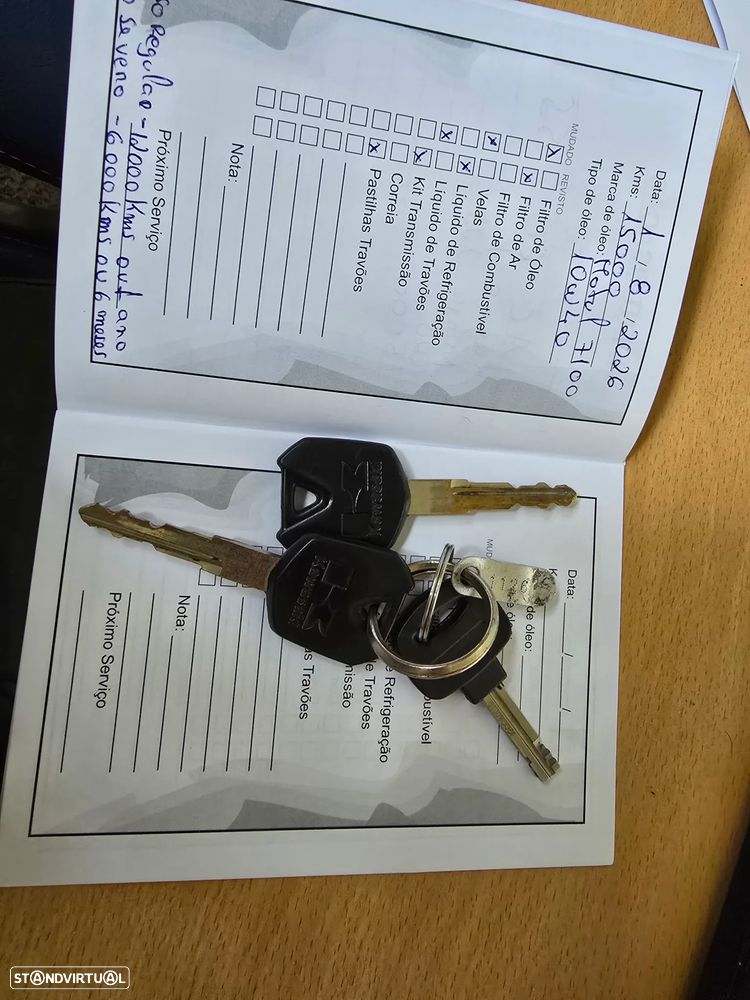 Data: 1 / 8 / 2026
Kms: 15000
Marca de óleo: Motul 7100
Tipo de óleo: 10w40
MUDADO REVISTO
Filtro de Óleo
Filtro de Ar
Filtro de Combustível
Velas
Líquido de Refrigeração
Líquido de Travões
Kit Transmissão
Correia
Pastilhas Travões
Nota:
Próximo Serviço
so Regular - 12000 Kms ou 1 ano
o severo - 6000 Kms ou 6 meses
Data: / /
K
de óleo:
de óleo:
MUD
bustível
e Refrigeração
e Travões
missão
s Travões
Nota:
Próximo Serviço
KAWASAKI
KAWASAKI
STANDVIRTUAL